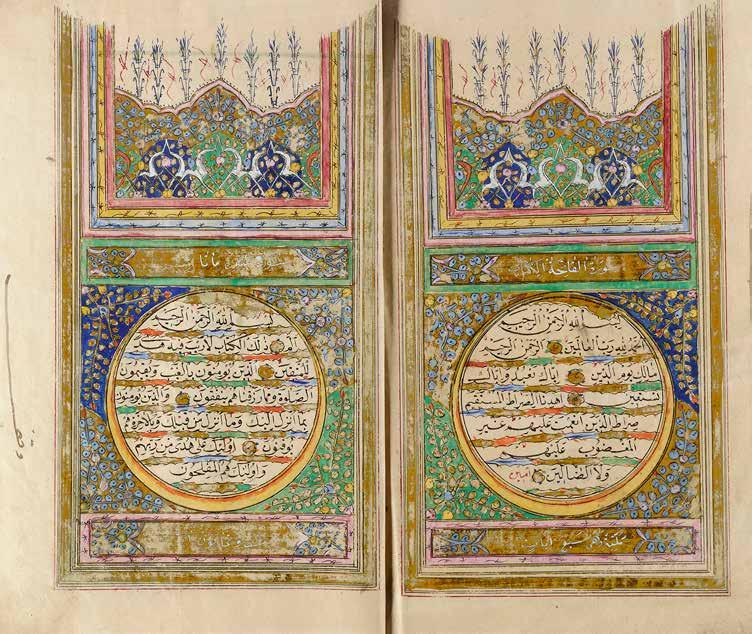 سورة الفاتحة الكتاب
بسم الله الرحمن الرحيم
الحمد لله رب العالمين الرحمن الرحيم
مالك يوم الدين اياك نعبد واياك
نستعين اهدنا الصراط المستقيم
صراط الذين انعمت عليهم غير
المغضوب عليهم
ولا الضالين امين
بسم الله الرحمن الرحيم
الم ذلك الكتاب لا ريب فيه هدى
للمتقين الذين يؤمنون بالغيب ويقيمون
الصلوة ومما رزقناهم ينفقون والذين يؤمنون
بما انزل اليك وما انزل من قبلك وبالاخرة هم
يوقنون اولئك على هدى من ربهم
واولئك هم المفلحون